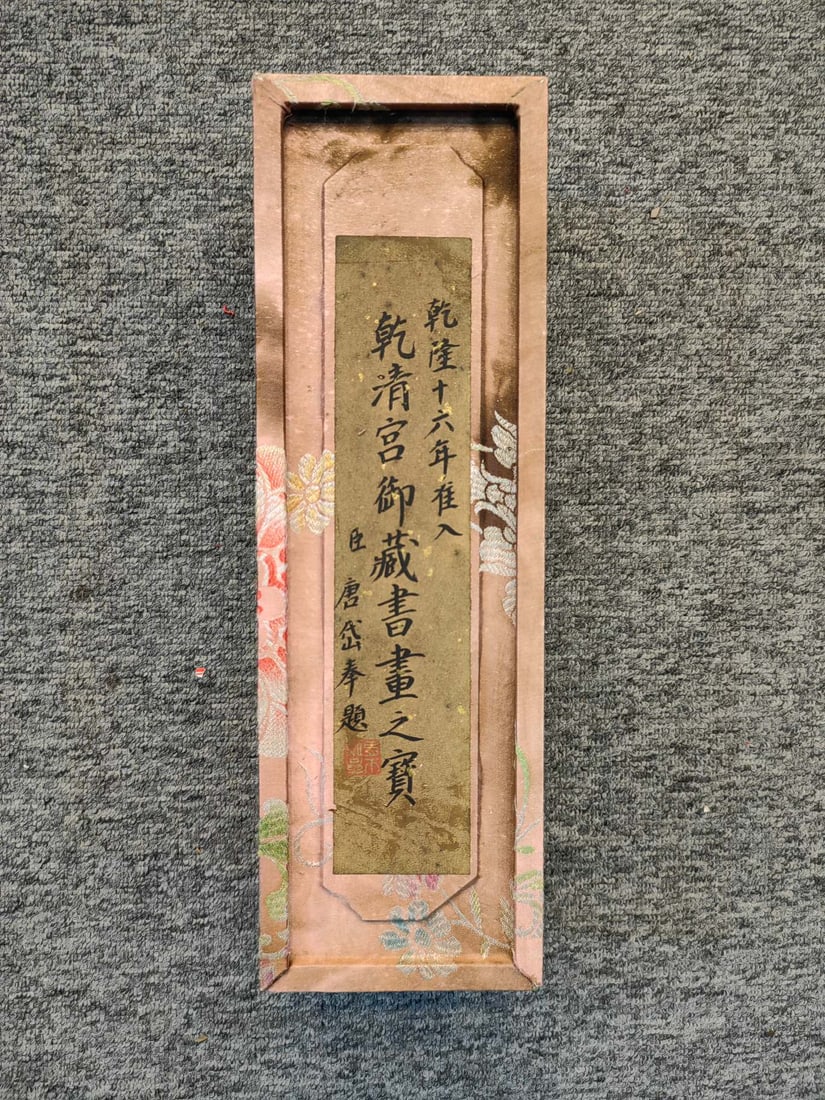 乾隆十六年在入
乾清宫御藏書畫之寶
臣唐岱奉題